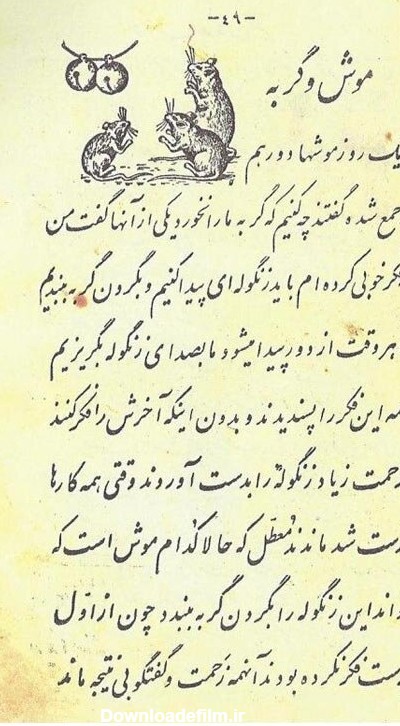 -٤٩-
موش و گربه
یک روز موشها دور هم
جمع شده گفتند چه کنیم که گربه ما را نخورد یکی از آنها گفت من
فکر خوبی کرده ام باید زنگوله ای پیدا کنیم و بگردن گربه ببندیم
هر وقت از دور پیدا میشود ما بصدای زنگوله بگریزیم
همه این فکر را پسندیدند و بدون اینکه آخرش را فکر کنند
زحمت زیاد زنگوله را بدست آوردند وقتی همه کارها
درست شد ماندند معطّل که حالا کدام موش است که
بتواند این زنگوله را بگردن گربه ببندد چون از اوّل
درست فکر نکرده بودند آنهمه زحمت و گفتگو بی نتیجه ماند
Downloadefilm.ir